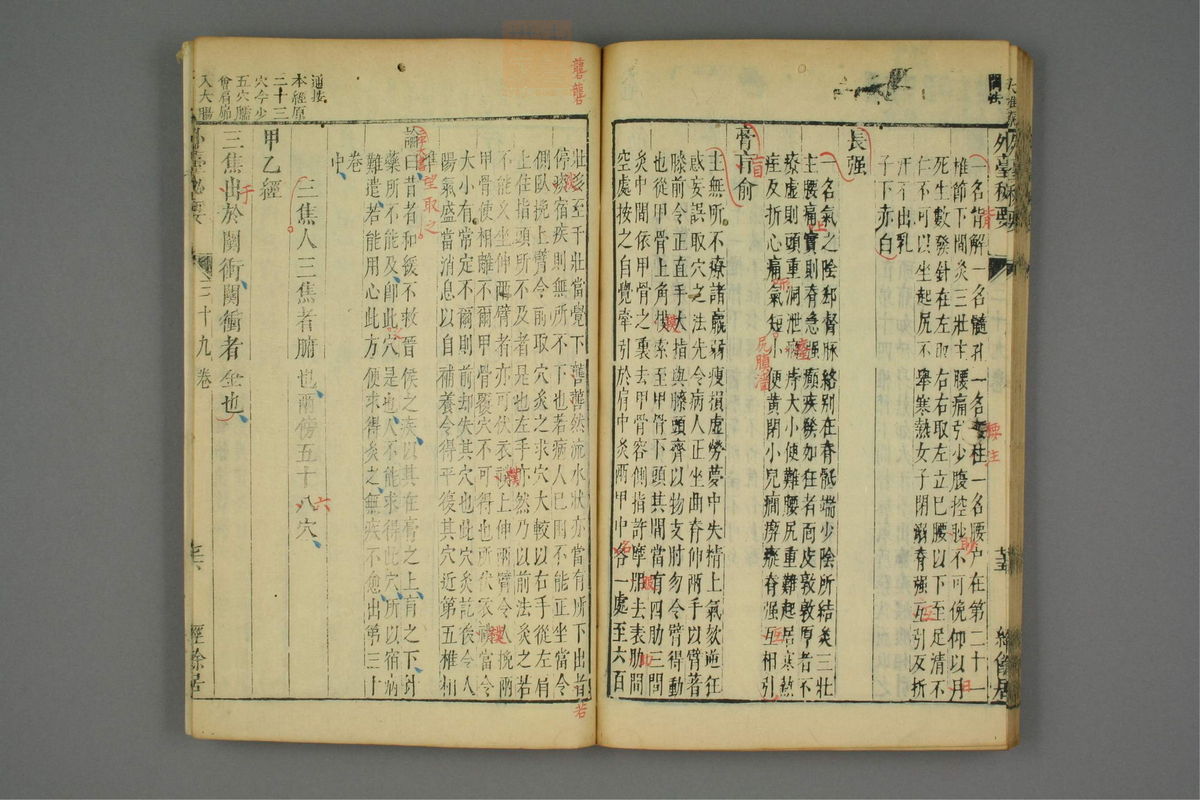 外臺秘要
一名背解一名髓孔一名腰柱一名腰户在第二十一
椎節下間灸三壯主腰痛引少腹控䏚不可俛仰以月
死生數發針在左取右右取左立已腰以下至足清不
仁不可以坐起尻不舉寒熱女子閉溺脊強互引反折
汗不出乳子下赤白
長强
一名氣之陰郄督脉絡别在脊骶端少陰所結灸三壯
主腰痛上寒實則脊急强癲疾發如狂者面皮敦敦厚者不
療虛則頭重洞泄癃痔大小便難腰尻重難起居寒熱
痓反折心痛氣短小便黄閉小兒癇瘈瘲脊强互相引
膏肓俞
主無所不療諸羸弱瘦損虛勞夢中失精上氣欬逆狂
惑妄誤取穴之法先令病人正坐曲脊伸兩手以臂著
膝前令正直手大指與膝頭齊以物支肘勿令臂得動
也從甲骨上角摸索至甲骨下頭其間當有四肋三間
灸中間依甲骨之裏去甲骨容側指許摩䏢去表肋間
空處按之自覺牽引於肩中灸兩甲中各一處至六百
壯多至千壯當覺下礱礱然流水狀亦當有所下出若
停痰宿疾則無所不下也若病人已困不能正坐當令
側臥挽上臂令前取穴灸之求穴大較以右手從左肩
上住指頭所不及者是也左手亦然乃以前法灸之若
不能久坐伸兩臂者亦可伏衣襆上伸兩臂令人挽兩
甲骨使相離不爾甲骨覆穴不可得也所伏衣襆當令
大小有常定不爾則前却失其穴也此穴灸訖後令人
陽氣盛當消息以自補養令得平復其穴近第五椎相
準望取之
論曰昔者和緩不救晉侯之疾以其在膏之上肓之下針
藥所不能及即此穴是也人不能求得此穴所以宿病
難遣若能用心此方便求得灸之無疾不愈出第三十
卷中
三焦人三焦者腑也兩傍五十六八穴
甲乙經
三焦出於關衝關衝者金也
外臺秘要
三十九卷
經餘居
通按
本經原
二十三
穴今少
五穴臑
會肩窌
入大腸
礱礱
若